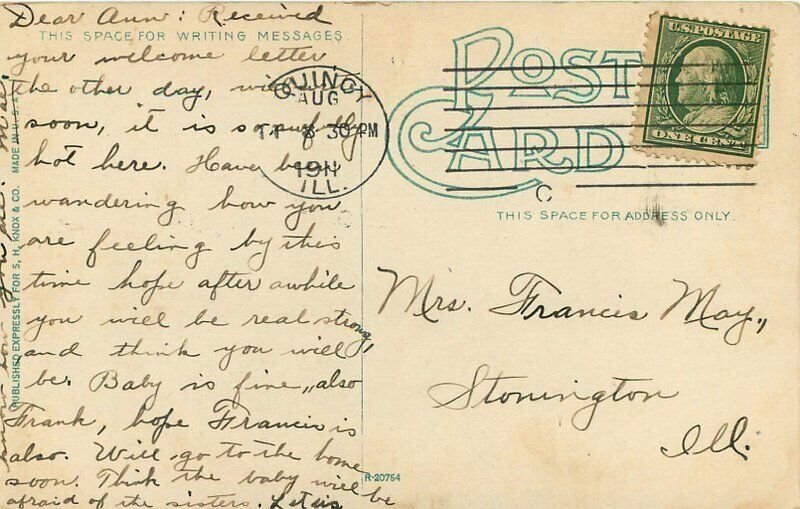 Dear Ann: Received
THIS SPACE FOR WRITING MESSAGES.
your welcome letter
the other day,
soon, it is so awfully
hot here. Have been
wandering how you
are feeling by this
time hope after awhile
you will be real strong,
and think you will
be. Baby is fine, also
Frank, hope Francis is
also. Will go to the home
soon. Think the baby will be
afraid of the sisters. Let us
know how you are.
PUBLISHED EXPRESSLY FOR S. H. KNOX & CO. MADE IN U.S.A.
QUINCY
AUG
11
8 30 PM
1911
ILL.
POST
CARD
C
U.S. POSTAGE
ONE CENT
THIS SPACE FOR ADDRESS ONLY.
Mrs. Francis May,,
Stonington
Ill.
R-20754